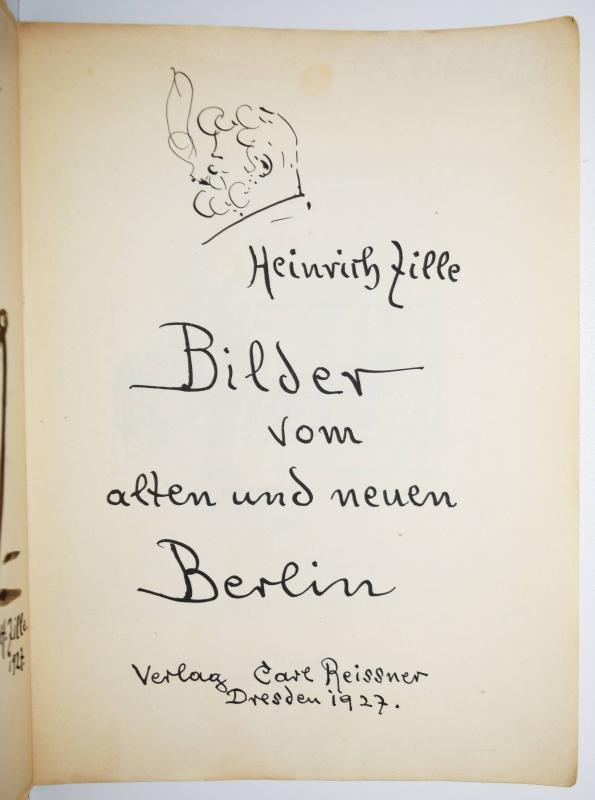 Heinrich Zille
Bilder
vom
alten und neuen
Berlin
Verlag Carl Reissner
Dresden 1927.
H. Zille
1927.